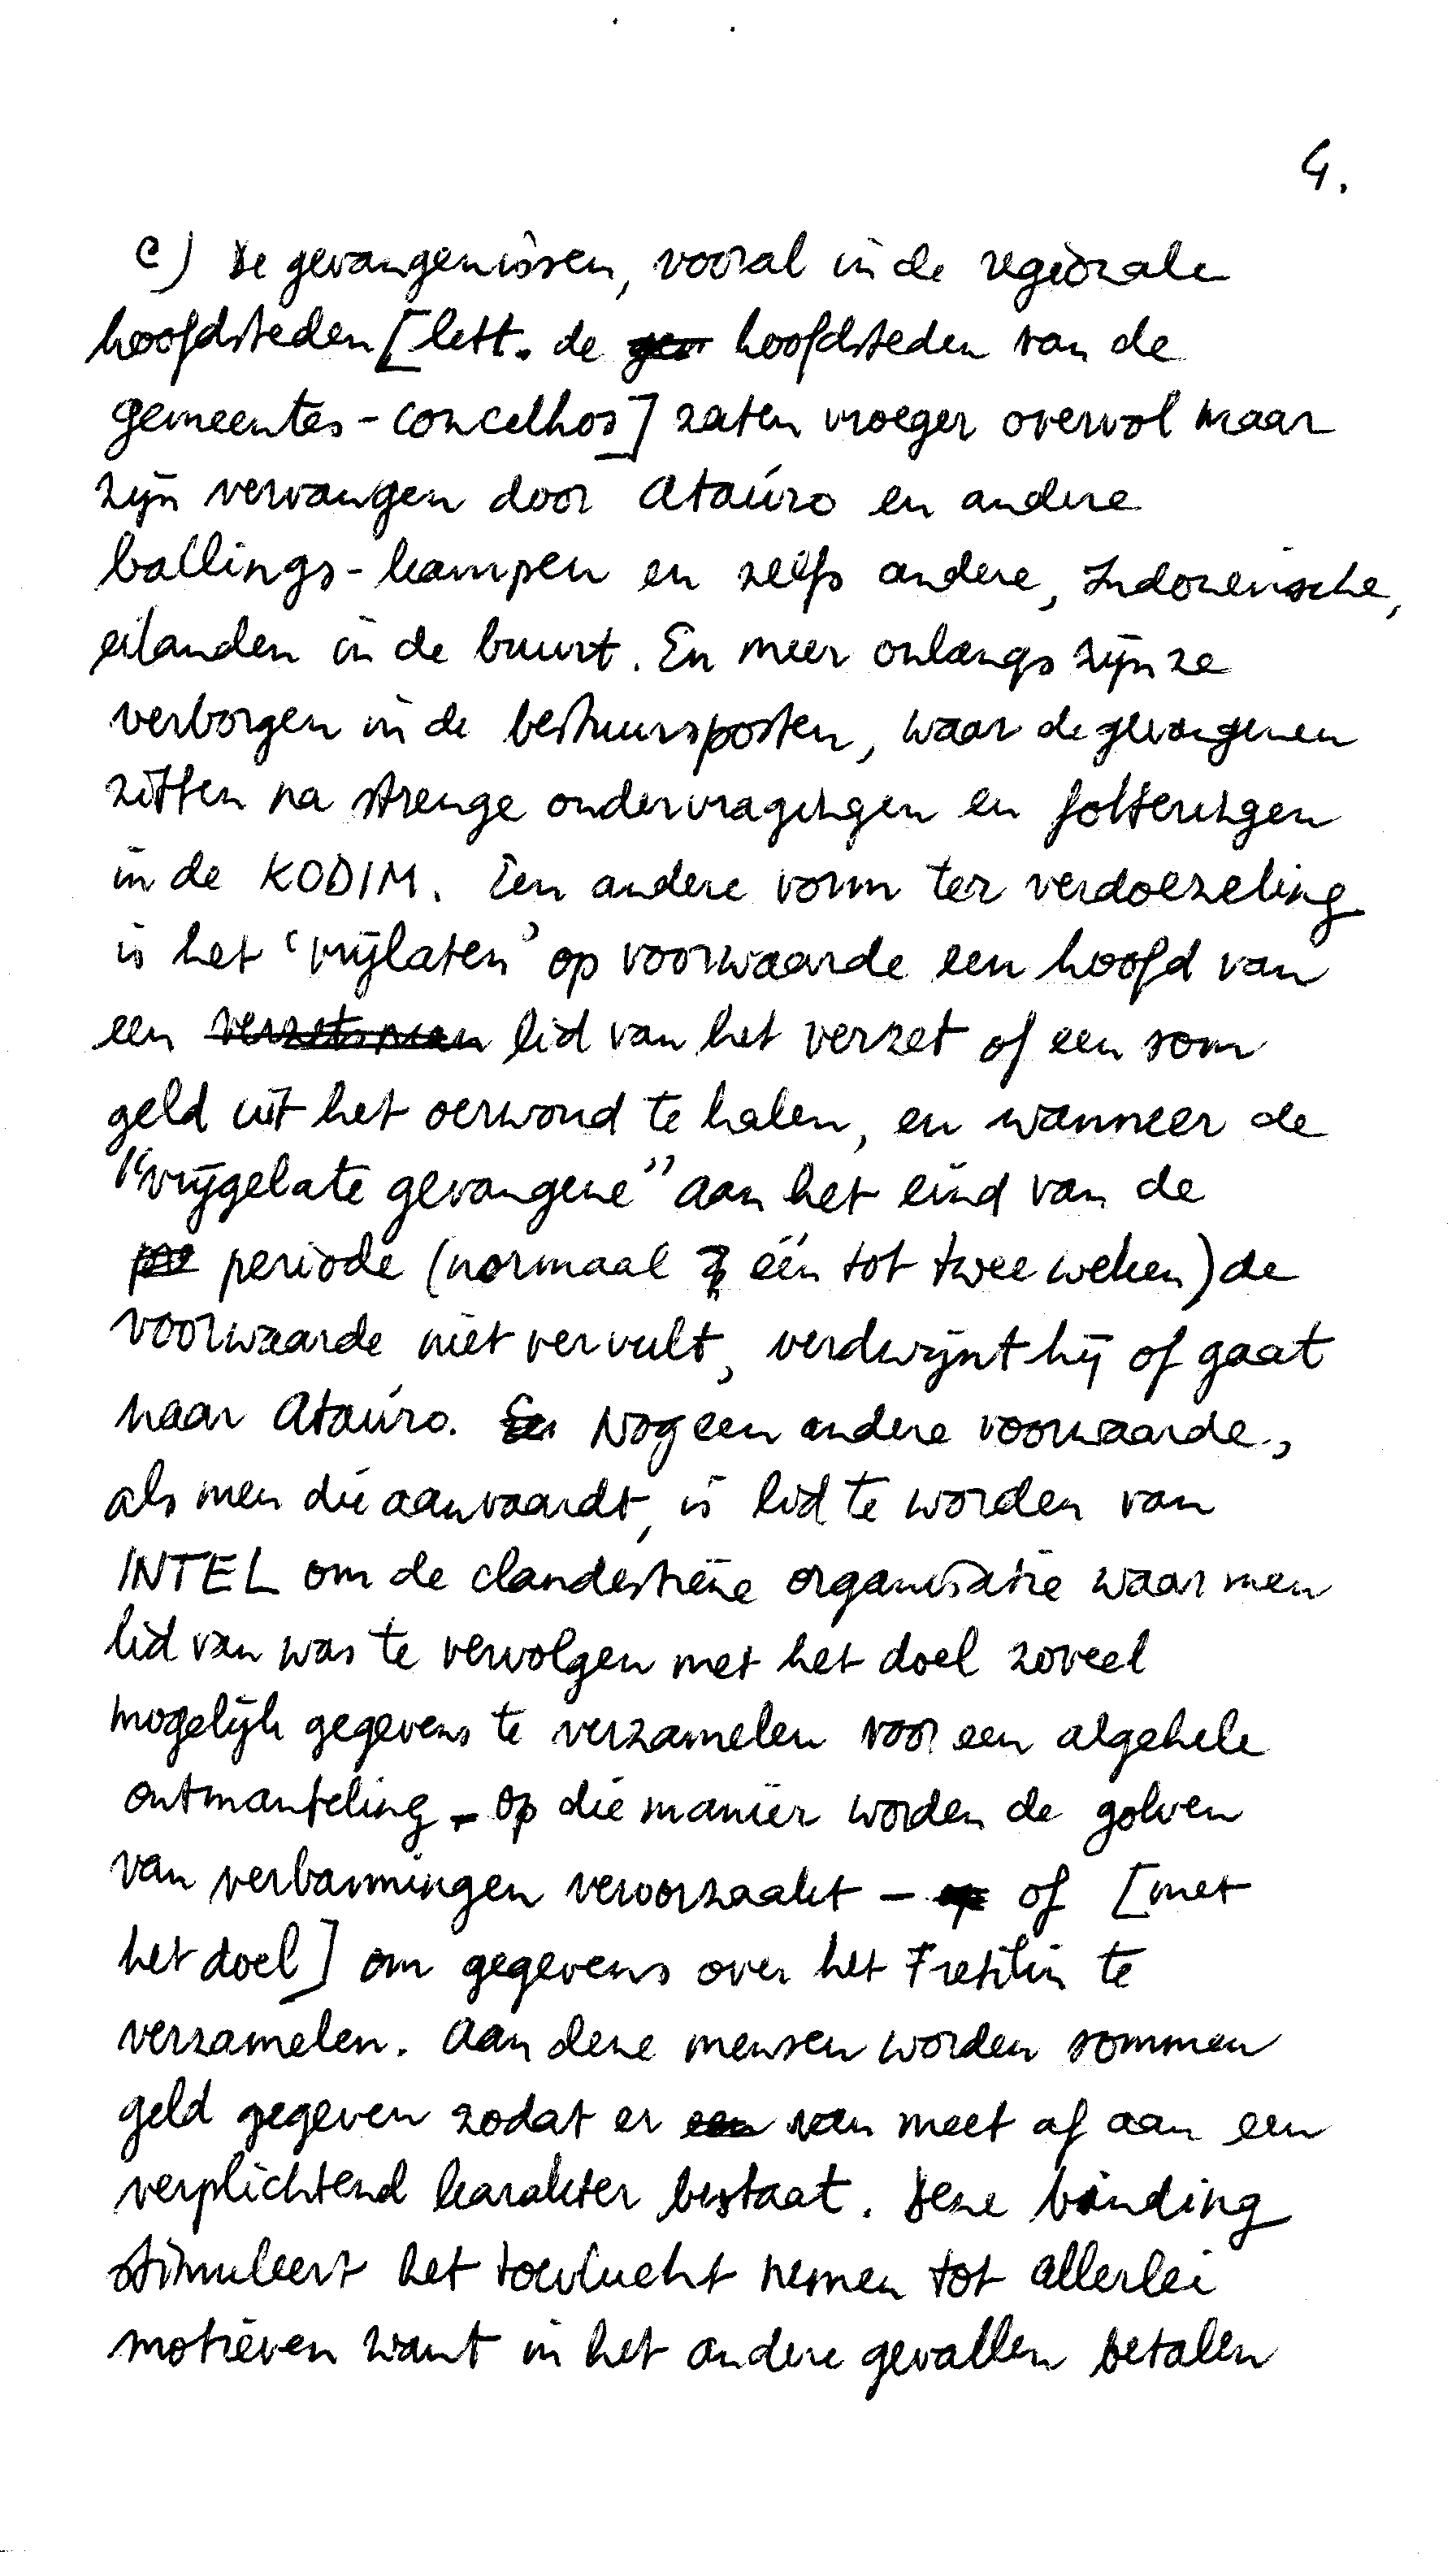 4.
c) De gevangenissen, vooral in de regionale
hoofdsteden [lett. de hoofdsteden van de
gemeentes-concelhos] zaten vroeger overvol maar
zijn vervangen door Ataúro en andere
ballings-kampen en zelfs andere, Indonesische,
eilanden in de buurt. En meer onlangs zijn ze
verborgen in de bestuursposten, waar de gevangenen
zitten na strenge ondervragingen en folteringen
in de KODIM. Een andere vorm ter verdoezeling
is het 'vrijlaten' op voorwaarde een hoofd van
een verzetsman lid van het verzet of een som
geld uit het oerwoud te halen, en wanneer de
"vrijgelate gevangene" aan het eind van de
periode (normaal één tot twee weken) de
voorwaarde niet vervult, verdwijnt hij of gaat
naar Ataúro. Nog een andere voorwaarde,
als men die aanvaardt, is lid te worden van
INTEL om de clandestiene organisatie waar men
lid van was te vervolgen met het doel zoveel
mogelijk gegevens te verzamelen voor een algehele
ontmanteling - op die manier worden de golven
van verbanningen veroorzaakt - of [met
het doel] om gegevens over het Fretilin te
verzamelen. Aan deze mensen worden sommen
geld gegeven zodat er van meet af aan een
verplichtend karakter bestaat. Deze binding
stimuleert het toevlucht nemen tot allerlei
motieven want in het andere gevallen betalen